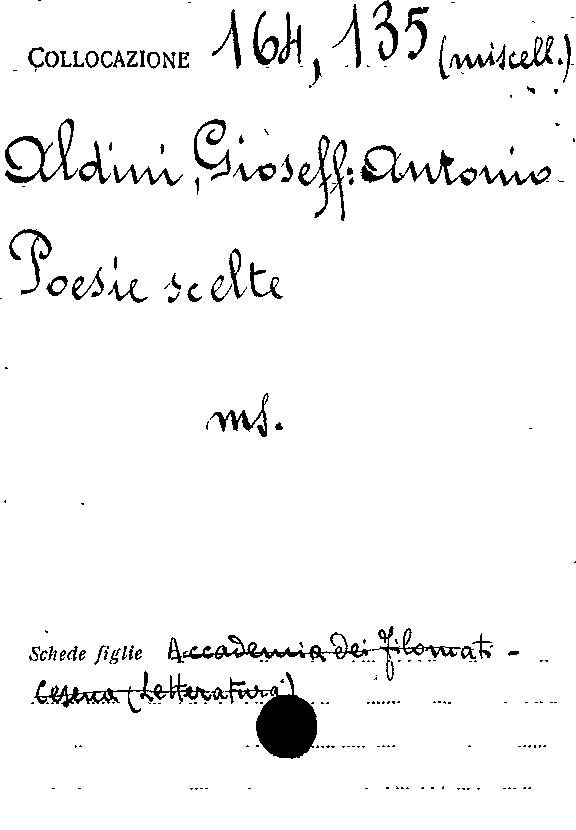 COLLOCAZIONE 164, 135 (miscell.)
Aldini, Gioseff: Antonio
Poesie scelte
ms.
Schede figlie Accademia dei Filomati -
Cesena (Letteratura)